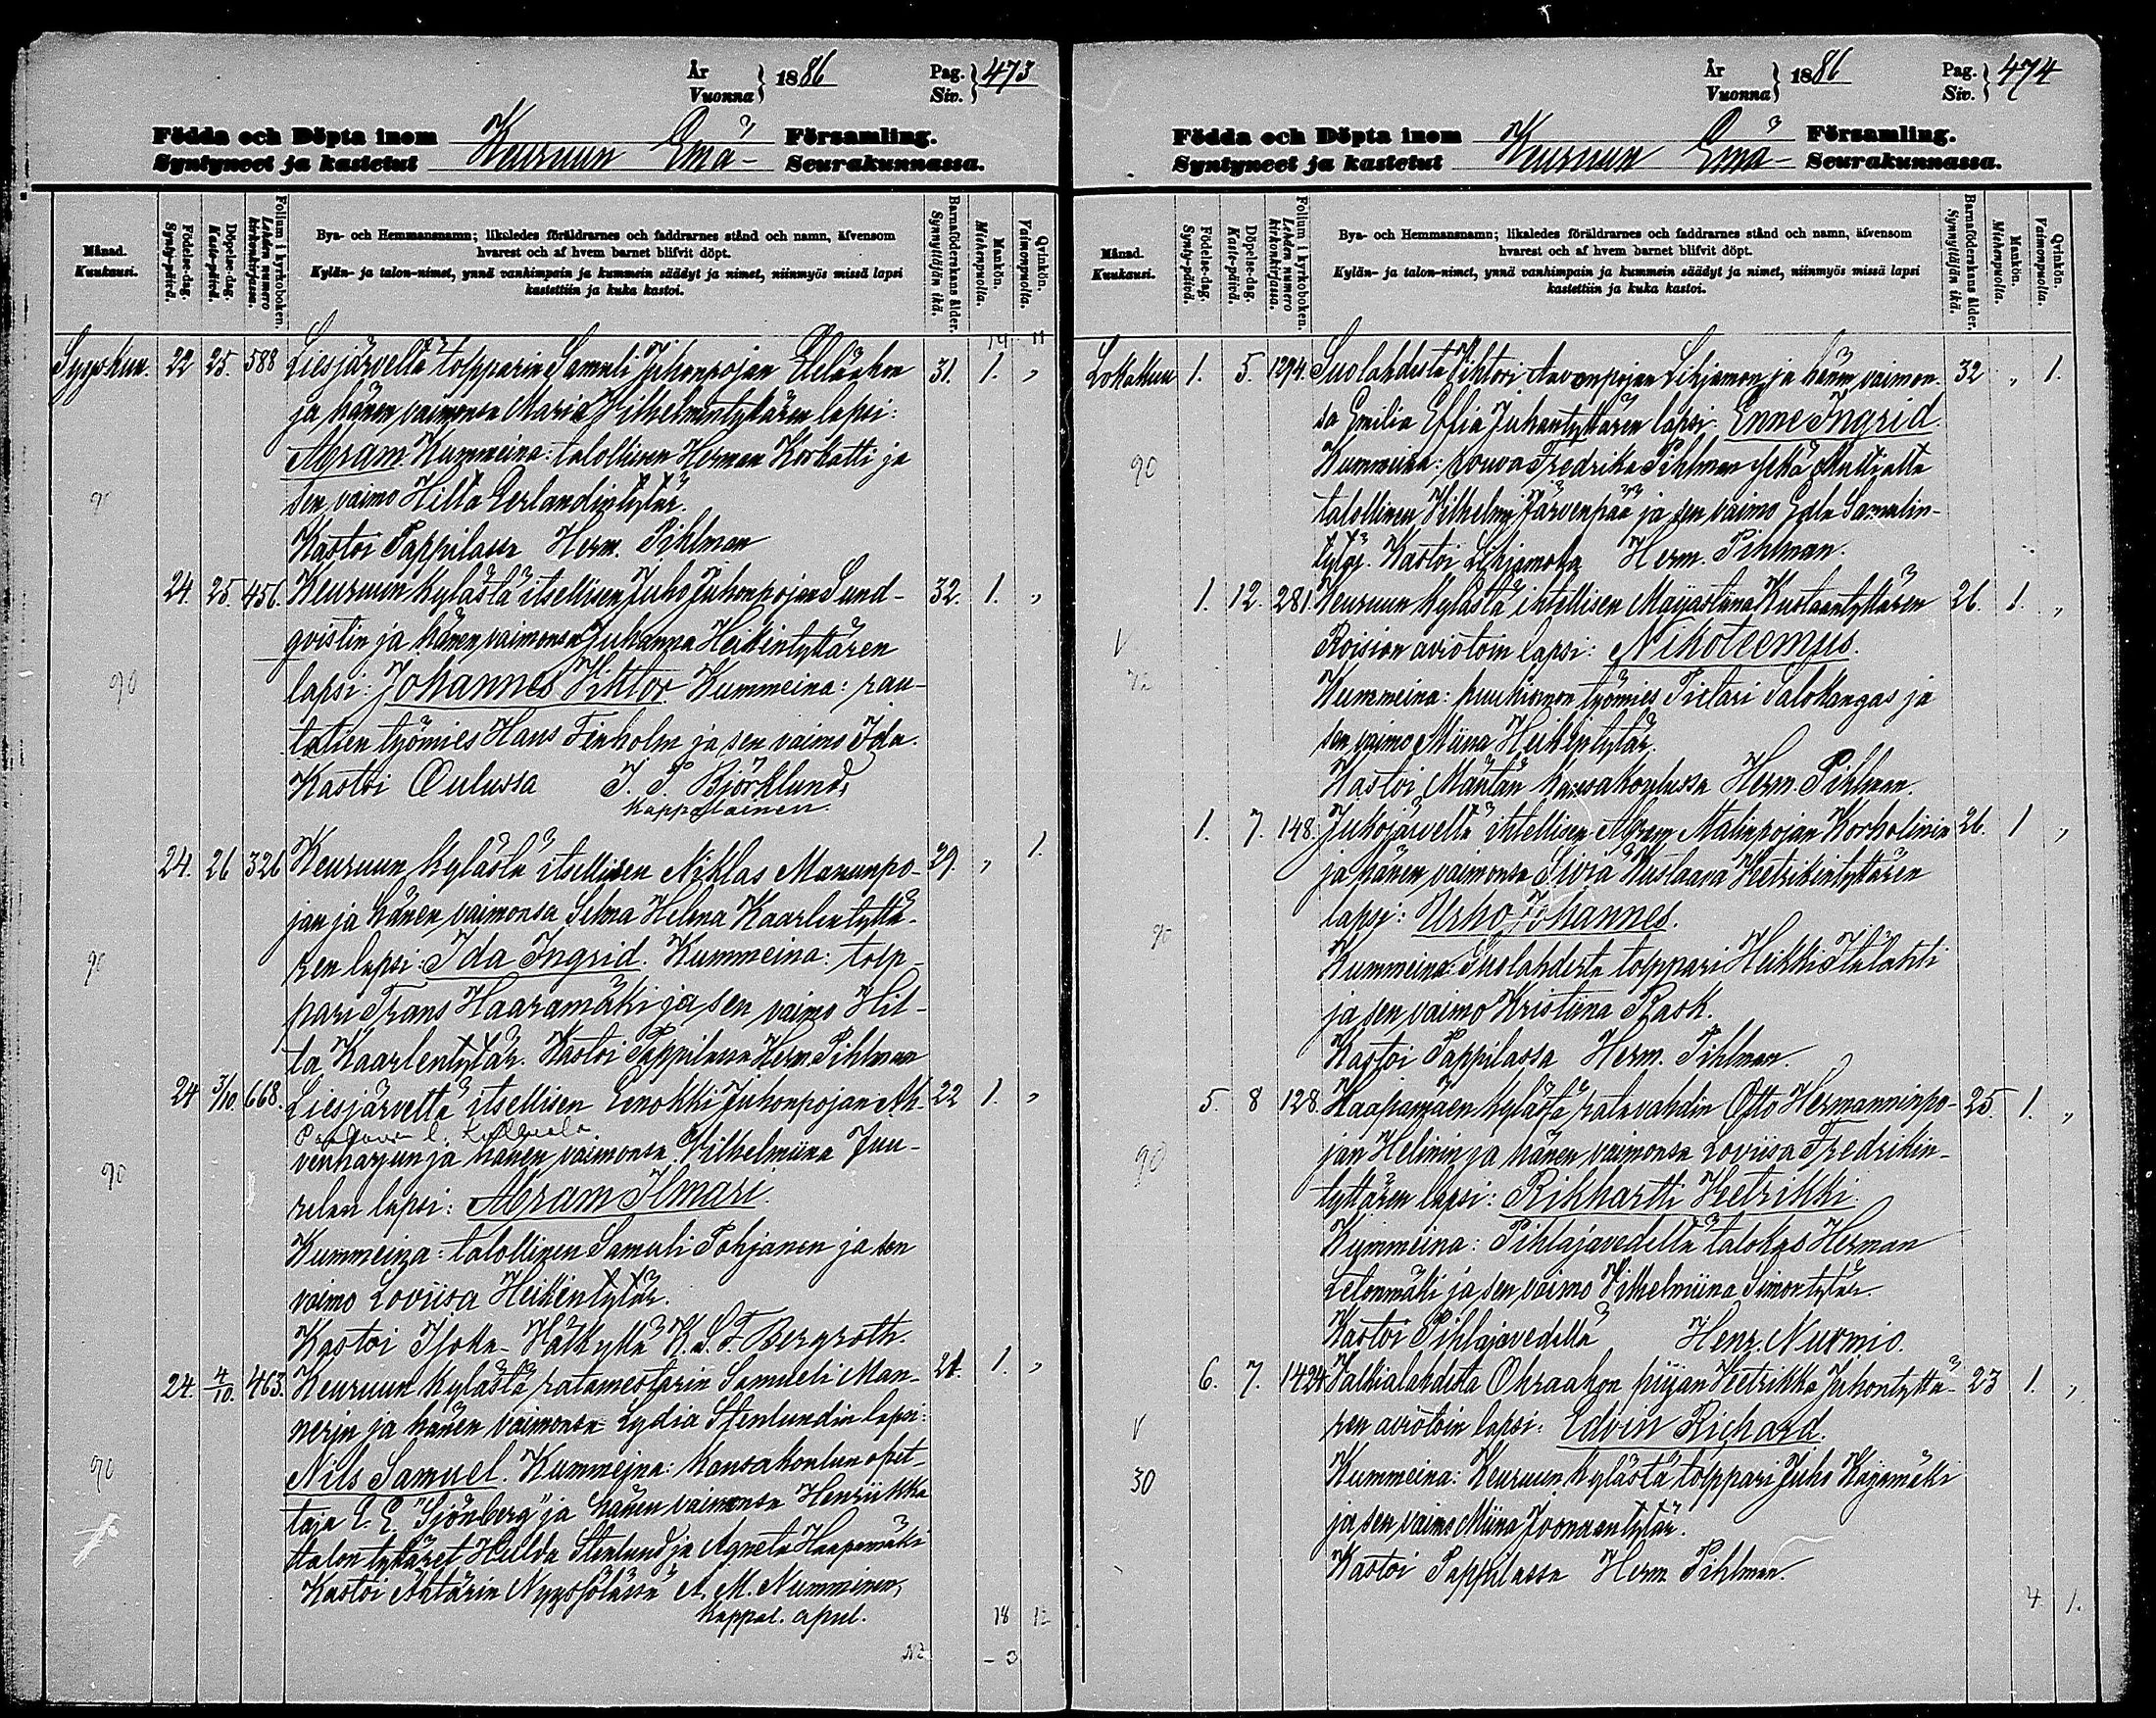 År
Vuonna } 1886
Pag.
Siv. } 473
Födda och Döpta inom
Syntyneet ja kastetut
Keuruun Emä-
Församling.
Seurakunnassa.
Månad.
Kuukausi.
Födelse-dag.
Synty-päivä.
Döpelse-dag.
Kaste-päivä.
Folium i kyrkoboken.
Lehden numero kirkonkirjassa.
Bya- och Hemmansnamn; likaledes föräldrarnes och faddrarnes stånd och namn, äfvensom
hvarest och af hvem barnet blifvit döpt.
Kylän- ja talon-nimet, ynnä vanhimpain ja kummein säädyt ja nimet, niinmyös missä lapsi
kastettiin ja kuka kastoi.
Barnaföderskans ålder.
Synnyttäjän ikä.
Mankön.
Miehenpuolia.
Qvinkön.
Vaimonpuolia.
14 11
Syyskuu. 22 25. 588 Liesjärveltä torpparin Samuli Juhonpojan 31. 1. „
ja hänen vaimonsa Maria Vilhelmintyttären lapsi:
Abram. Kummeina: talollinen Herman Korhatti ja
sen vaimo Hilta Eerlandintytär.
Kastoi Pappilassa Herm. Pihlman
24. 25. 456. Keuruun kylästä itsellisen Juho Juhonpojan Sund- 32. 1. „
qvistin ja hänen vaimonsa Juhanna Heikintyttären
90
lapsi: Johannes Vihtor Kummeina: rau-
tatien työmies Hans Finholm ja sen vaimo Ida.
Kastoi Oulussa J. P. Björklund,
kappalainen.
24. 26 326 Keuruun kylästä itsellisen Niklas Manunpo- 29. „ 1.
jan ja hänen vaimonsa Selma Helena Kaarlentyttä-
90
ren lapsi: Ida Ingrid. Kummeina: torp-
pari Frans Haaramäki ja sen vaimo Hil-
ta Kaarlentytär. Kastoi Pappilassa Herm. Pihlman
24 3/10. 668. Liesjärveltä itsellisen Eenokki Juhonpojan Ah- 22 1. „
venharjun ja hänen vaimonsa Vilhelmiina Juu-
90
relan lapsi: Abram Ilmari.
Kummeina: talollinen Samuli Pohjanen ja sen
vaimo Loviisa Heikintytär.
Kastoi K. S. F. Bergroth.
24. 4/10. 463. Keuruun kylästä ratamestarin Samueli Man- 21. 1. „
nerin ja hänen vaimonsa Lydia Stenlundin lapsi:
90
Nils Samuel. Kummeina: Kansakoulun opet-
taja E. E. Sjönberg ja hänen vaimonsa Henriikka
talon tyttäret Hulda Stenlund ja Agneta Haapamäki
Kastoi Ähtärin A. M. Numminen,
kappal. apul.
18 12
År
Vuonna } 1886
Pag.
Siv. } 474
Födda och Döpta inom
Syntyneet ja kastetut
Keuruun Emä-
Församling.
Seurakunnassa.
Månad.
Kuukausi.
Födelse-dag.
Synty-päivä.
Döpelse-dag.
Kaste-päivä.
Folium i kyrkoboken.
Lehden numero kirkonkirjassa.
Bya- och Hemmansnamn; likaledes föräldrarnes och faddrarnes stånd och namn, äfvensom
hvarest och af hvem barnet blifvit döpt.
Kylän- ja talon-nimet, ynnä vanhimpain ja kummein säädyt ja nimet, niinmyös missä lapsi
kastettiin ja kuka kastoi.
Barnaföderskans ålder.
Synnyttäjän ikä.
Mankön.
Miehenpuolia.
Qvinkön.
Vaimonpuolia.
Lokakuu 1. 5. 1294. Suolahdesta Vihtori Aaronpojan Lihjamon ja hänen vaimon- 32 „ 1.
sa Emilia Effia Juhantyttären lapsi: Enne Ingrid.
90
Kummeina: rouva Fredrika Pihlman sekä
talollinen Vilhelmi Järvenpää ja sen vaimo Edla Samulin-
tytär. Kastoi Herm. Pihlman.
1. 12. 281. Keuruun kylästä ihtellisen Maijastiina Kustaantyttären 26. 1. „
Roision aviotoin lapsi: Nikoteemus.
Kummeina: puuhiomon työmies Pietari Salokangas ja
sen vaimo Miina Heikintytär.
Kastoi Mäntän kansakoulussa Herm. Pihlman.
1. 7. 148. Jukojärveltä ihtellisen Abram Matinpojan Korholinin 26. 1 „
ja hänen vaimonsa Siviä Kustaava Heetrikintyttären
90
lapsi: Urho Johannes.
Kummeina: Suolahdesta torppari Heikki Itälahti
ja sen vaimo Kristiina Rask.
Kastoi Pappilassa Herm. Pihlman.
5. 8 128. Haapamäen kylästä ratavahdin Otto Hermanninpo- 25 1. „
90
jan Helinin ja hänen vaimonsa Loviisa Fredrikin-
tyttären lapsi: Rikhartti Heetrikki
Kummeina: Pihlajavedeltä talokas Herman
Letonmäki ja sen vaimo Vilhelmiina Simontytär
Kastoi Pihlajavedellä Henr. Nurmio.
6. 7. 1424. Valkialahdesta Ohraahon piijan Heetrikka Juhontyttä- 23 1. „
V
ren aviotoin lapsi: Edvin Richard.
30
Kummeina: Keuruun kylästä torppari Juho Koijumäki
ja sen vaimo Miina Joonaantytär.
Kastoi Pappilassa Herm. Pihlman.
4. 1.